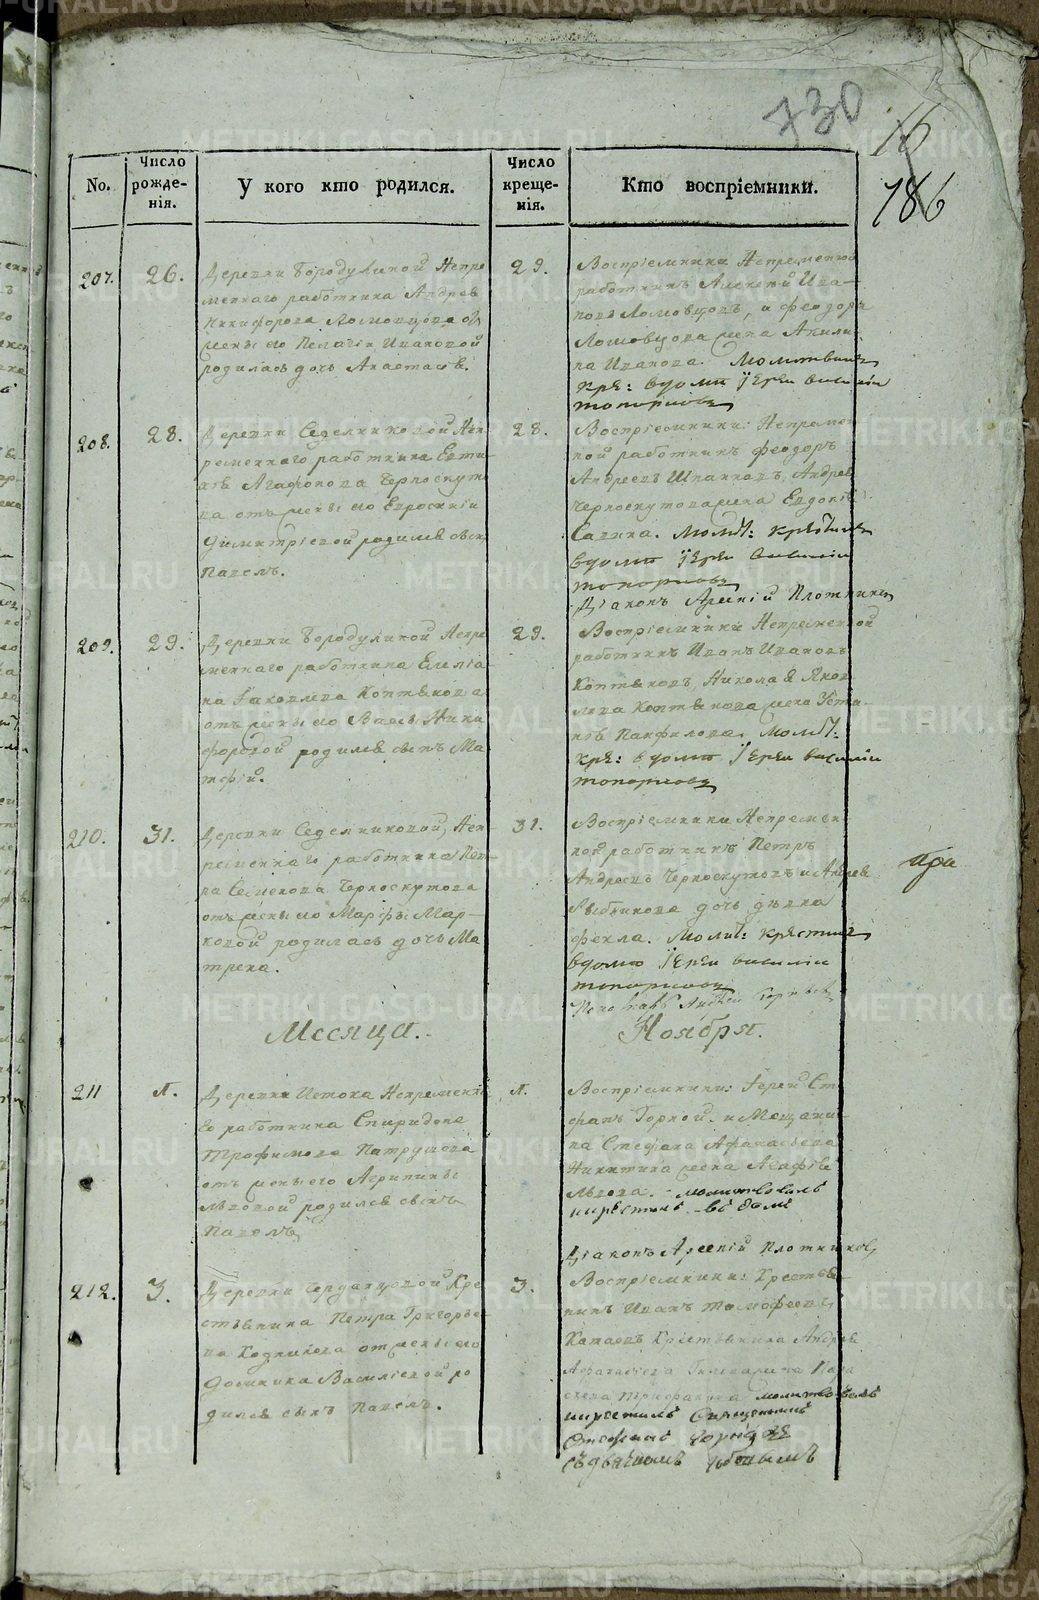 730
16
186
No.
Число рожде- нія.
У кого кто родился.
Число креще- нія.
Кто воспріемники.
207.
26.
Деревни Бородулиной Непре
меннаго работника Андрея
Никифорова Ломовцова от
жены его Пелагіи Ивановой
родилась дочь Анастасія.
29.
Воспріемники Непременной
работникъ Алексей Ива-
новъ Ломовцовъ, и Феодора
Ломовцова жена Акили-
на Иванова. Молитвилъ
кре: вдоми Іереи василіи
топорковъ
208.
28.
Деревни Седелниковой Неп-
ременнаго работника Евти-
хія Агафонова Черноскуто
ва отъ жены его Евросиніи
Димитріевой родился сынъ
Павелъ.
28.
Воспріемники: Непремен-
ной работникъ Феодоръ
Андреевъ, Андрея
Черноскутова жена Евдокія
Савина. Молит: крестилъ
вдоми Іереи василіи
топорковъ
Діаконъ Арсеній Плотниковъ
209.
29.
Деревни Бородулиной Непре
меннаго работника Емеліа
на Іаковлева Коптякова
отъ жены его Вассы Ники
форовой родился сынъ Ма-
тфій.
29.
Воспріемники Непременной
работникъ Иванъ Ивановъ
Коптяковъ, Николая Яков
лева Коптякова жена Усти-
нія Панфилова. Молит:
кре: вдоми Іереи василіи
топорковъ
210.
31.
Деревни Седелниковой, Неп-
ременнаго работника Пет-
ра Семенова Черноскутова
отъ жены его Марфы Мар-
ковой родилась дочь Ма
трена.
31.
Воспріемники Непремен-
ной работникъ Петръ
Андреевъ Черноскутовъ и Андрея
Рыбникова дочь девка
Фекла. Молит: крестилъ
вдоми Іереи василіи
топорковъ
Месяца.
Ноября.
211
1.
Деревни Истока Непременна
го работника Спиридона
Трофимова Патрушева
отъ жены его Агрипины
Львовой родился сынъ
Павелъ,
1.
Воспріемники: Іерей Сте
фанъ Горной. и Мещани-
на Стефана Афанасьева
Никитина жена Агафія
Львова. - молитвовалъ
икрестилъ въ доме
Діаконъ Арсеній Плотниковъ
212.
3.
Деревни Кре-
стьянина Петра Григорье
ва от жены его
Домника Василіевой ро
дился сынъ Павелъ.
3.
Воспріемники: Крестья-
нинъ Иванъ тимофеевъ
Крестьянина Андрея
Афанасіева Пара
скева молитвовалъ
икрестилъ Священникъ
Стефанъ